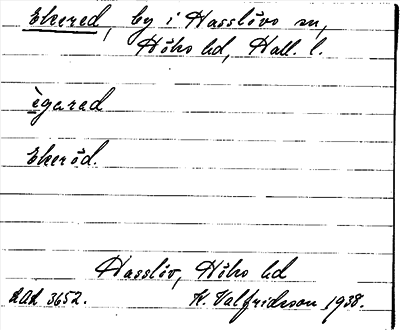 Ekered, by i Hasslövs sn,
Höks hd, Hall. l.
ègarad
Ekeröd.
Hasslöv, Höks hd
3652. K. Valfridsson 1938.